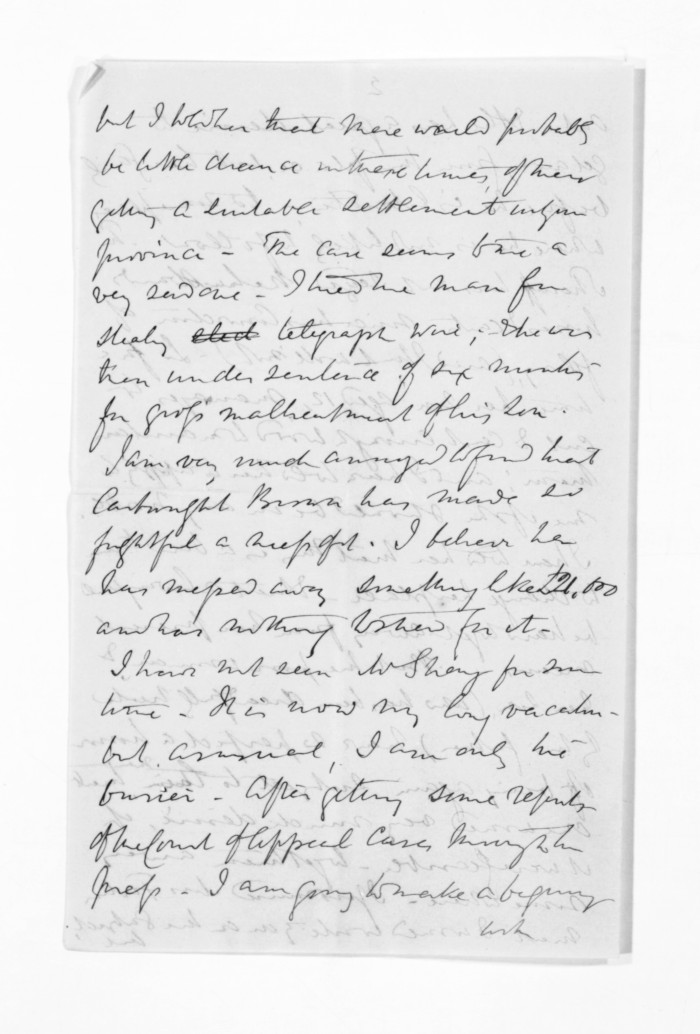 but I told her that there would probably
be little chance in these times, of their
getting a suitable settlement in your
province – The case seems to be a
very sad one – I tried the man for
stealing sted telegraph wire; – & he was
then under sentence of six months
for gross maltreatment of his son.
I am very much annoyed to find that
Cartwright Brown has made so
frightful a mess of it. I believe he
has messed away something like £21,000
and has nothing to show for it –
I have not seen McSheny for some
time – It is now my long vacation –
but as usual, I am only the
busier – After getting some reports
of the Court of Appeal Cases through the
Press – I am going to make a beginning
with